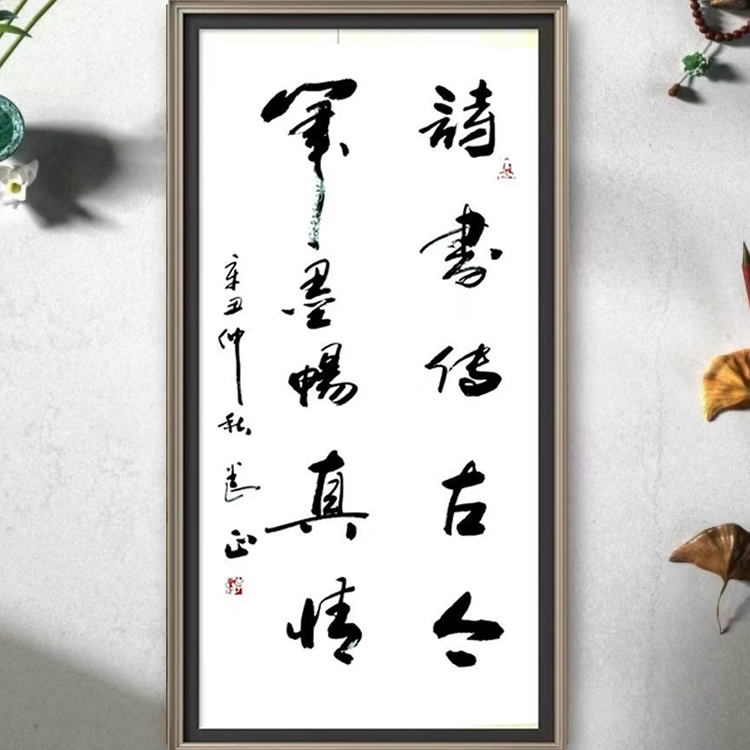 詩書传古今
筆墨暢真情
辛丑仲秋 正